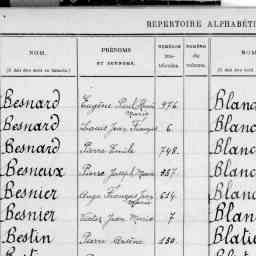 REPERTOIRE ALPHABÉTI
NOM.
(Il doit être écrit en bâtarde.)
PRÉNOMS
ET SURNOMS.
NUMÉROS
ma-
tricules.
NUMÉRO
du
volume.
NOM
(Il doit être écrit en
Besnard Eugène Paul Marie 976 Blanc
Marie
Besnard Louis Jean François 6 Blanc
Besnard Pierre Emile 748 Blanc
Besneux Pierre Joseph Marie 937 Blanc
Besnier Ange François Jean 614 Blanc
Marie
Besnier Victor Jean Marie 7 Blan
Bestin Pierre 130 Blati